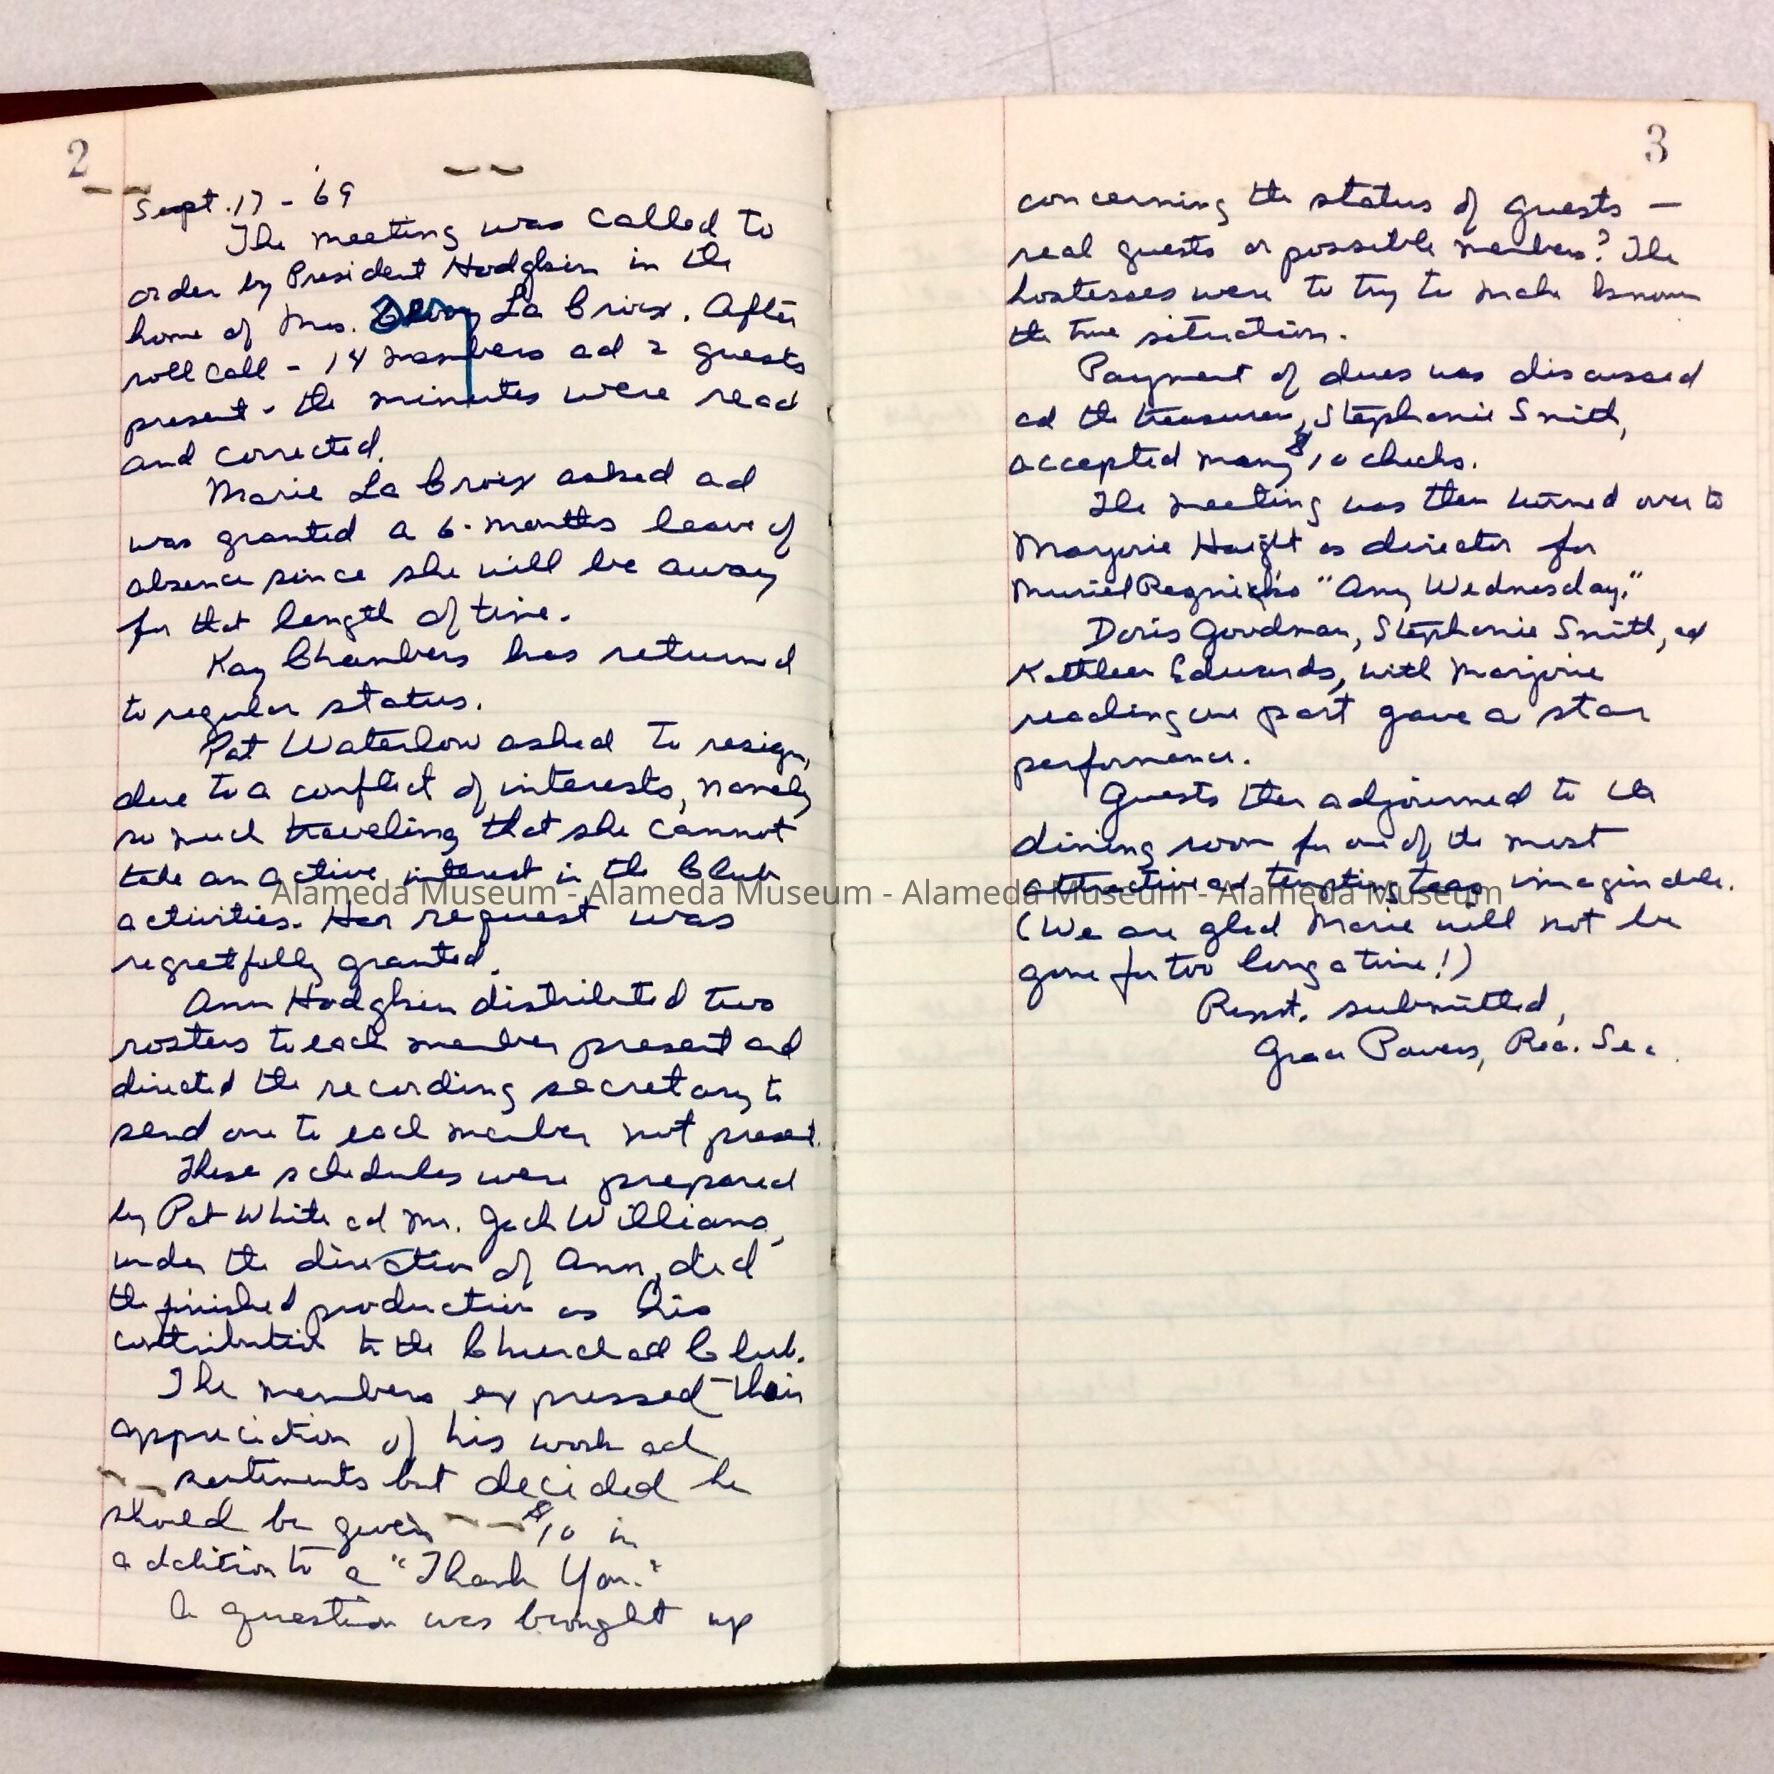 2
Sept. 17 - '69
The meeting was called to
order by President Hodgkin in the
home of Mrs. La Croix. After
roll call - 14 members ad 2 guests
present - the minutes were read
and corrected.
Marie La Croix asked ad
was granted a 6-months leave of
absence since she will be away
for that length of time.
Kay Chambers has returned
to regular status.
Pat Waterlow asked to resign,
due to a conflict of interests, namely
so much traveling that she cannot
take an active interest in the Club
activities. Her request was
regretfully granted.
Ann Hodgkin distributed two
rosters to each member present ad
directed the recording secretary to
send one to each member not present.
These schedules were prepared
by Pat White ad Mr. Jack Williams,
under the direction of Ann, did
the finished production as his
contribution to the Church ad Club.
The members expressed their
appreciation of his work ad
sentiments but decided he
should be given $10 in
addition to a "Thank You."
A question was brought up
3
concerning the status of guests —
real guests or possible members? The
hostesses were to try to make known
the true situation.
Payment of dues was discussed
ad the treasurer, Stephanie Smith,
accepted many $10 checks.
The meeting was then turned over to
Marjorie Haight as director for
Muriel Resnick's "Any Wednesday."
Doris Goodman, Stephanie Smith, ad
Kathleen Edwards, with Marjorie
reading one part gave a star
performance.
Guests then adjourned to the
dining room for one of the most
attractive ad tempting teas imaginable.
(We are glad Marie will not be
gone for too long a time!)
Respt. submitted,
Grace Powers, Rec. Sec.
Alameda Museum - Alameda Museum - Alameda Museum - Alameda Museum